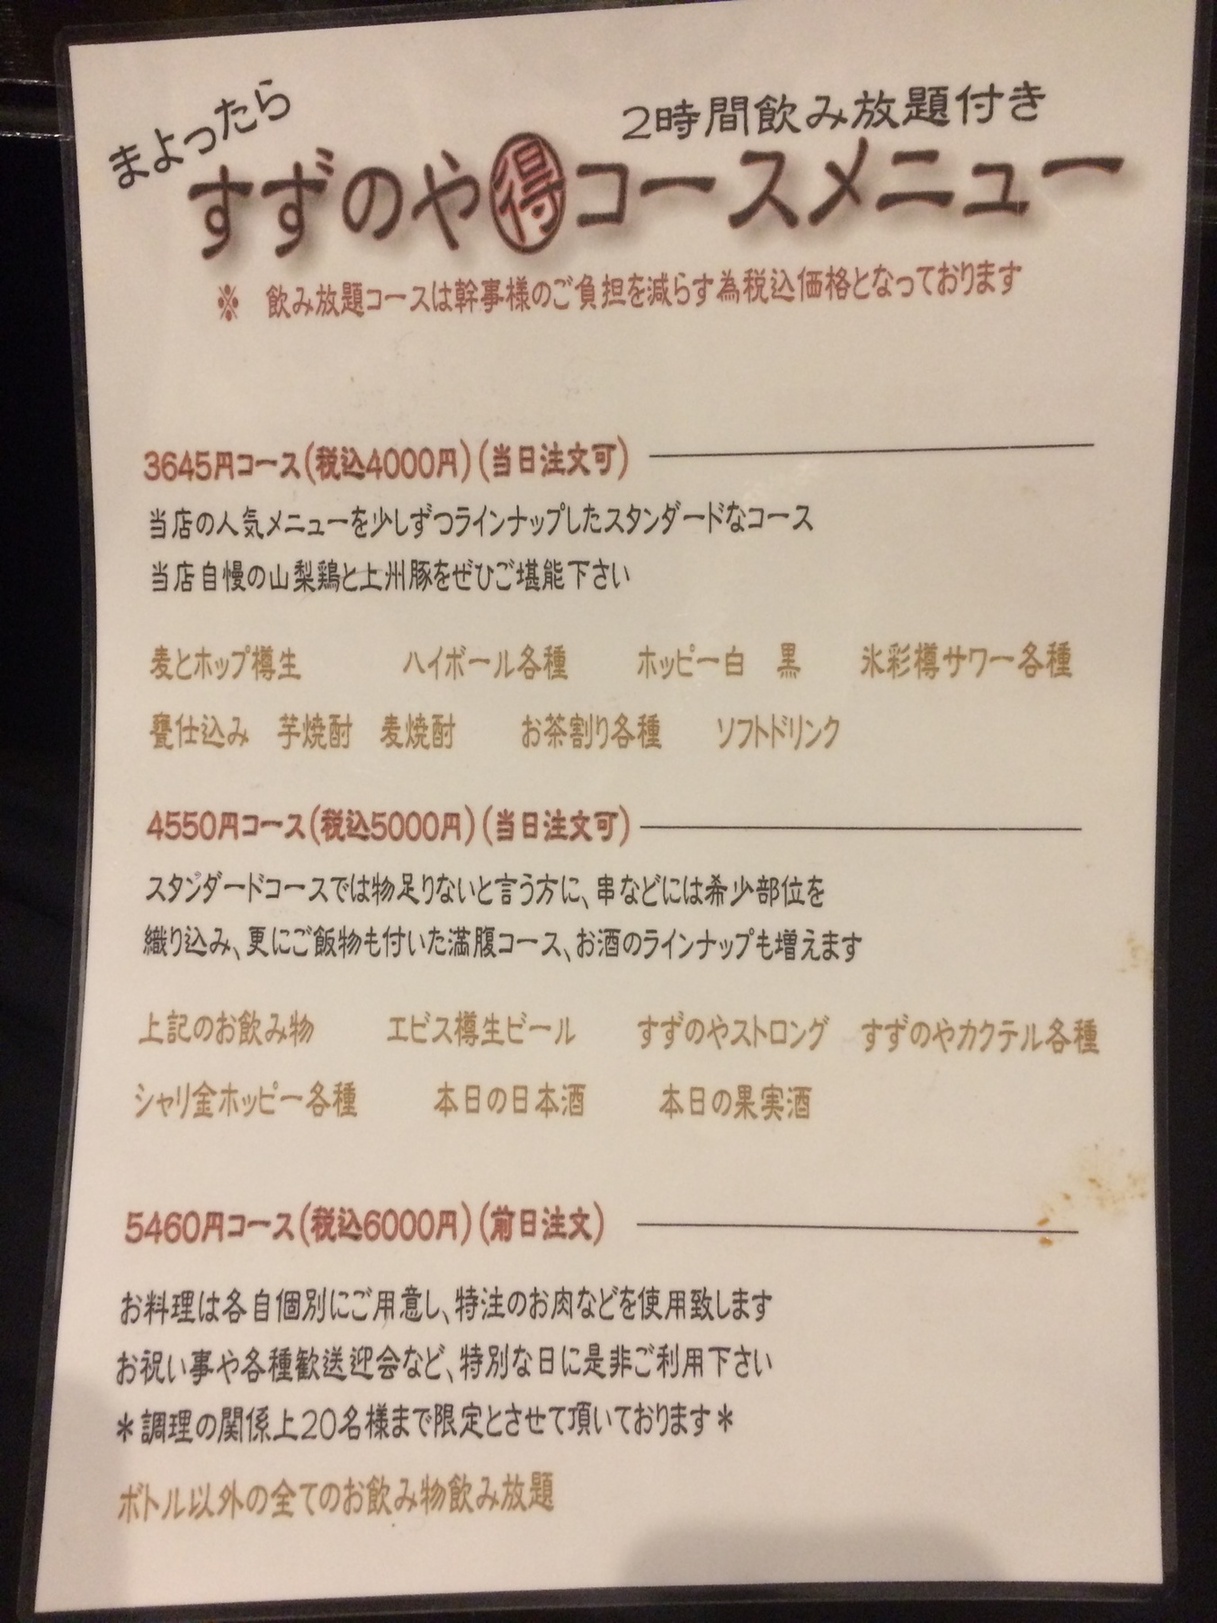 まよったら
2時間飲み放題付き
すずのや得コースメニュー
※ 飲み放題コースは幹事様のご負担を減らす為税込価格となっております
3645円コース(税込4000円)(当日注文可)
当店の人気メニューを少しずつラインナップしたスタンダードなコース
当店自慢の山梨鶏と上州豚をぜひご堪能下さい
麦とホップ樽生 ハイボール各種 ホッピー白 黒 氷彩樽サワー各種
甕仕込み 芋焼酎 麦焼酎 お茶割り各種 ソフトドリンク
4550円コース(税込5000円)(当日注文可)
スタンダードコースでは物足りないと言う方に、串などには希少部位を
織り込み、更にご飯物も付いた満腹コース、お酒のラインナップも増えます
上記のお飲み物 エビス樽生ビール すずのやストロング すずのやカクテル各種
シャリ金ホッピー各種 本日の日本酒 本日の果実酒
5460円コース(税込6000円)(前日注文)
お料理は各自個別にご用意し、特注のお肉などを使用致します
お祝い事や各種歓送迎会など、特別な日に是非ご利用下さい
*調理の関係上20名様まで限定とさせて頂いております*
ボトル以外の全てのお飲み物飲み放題